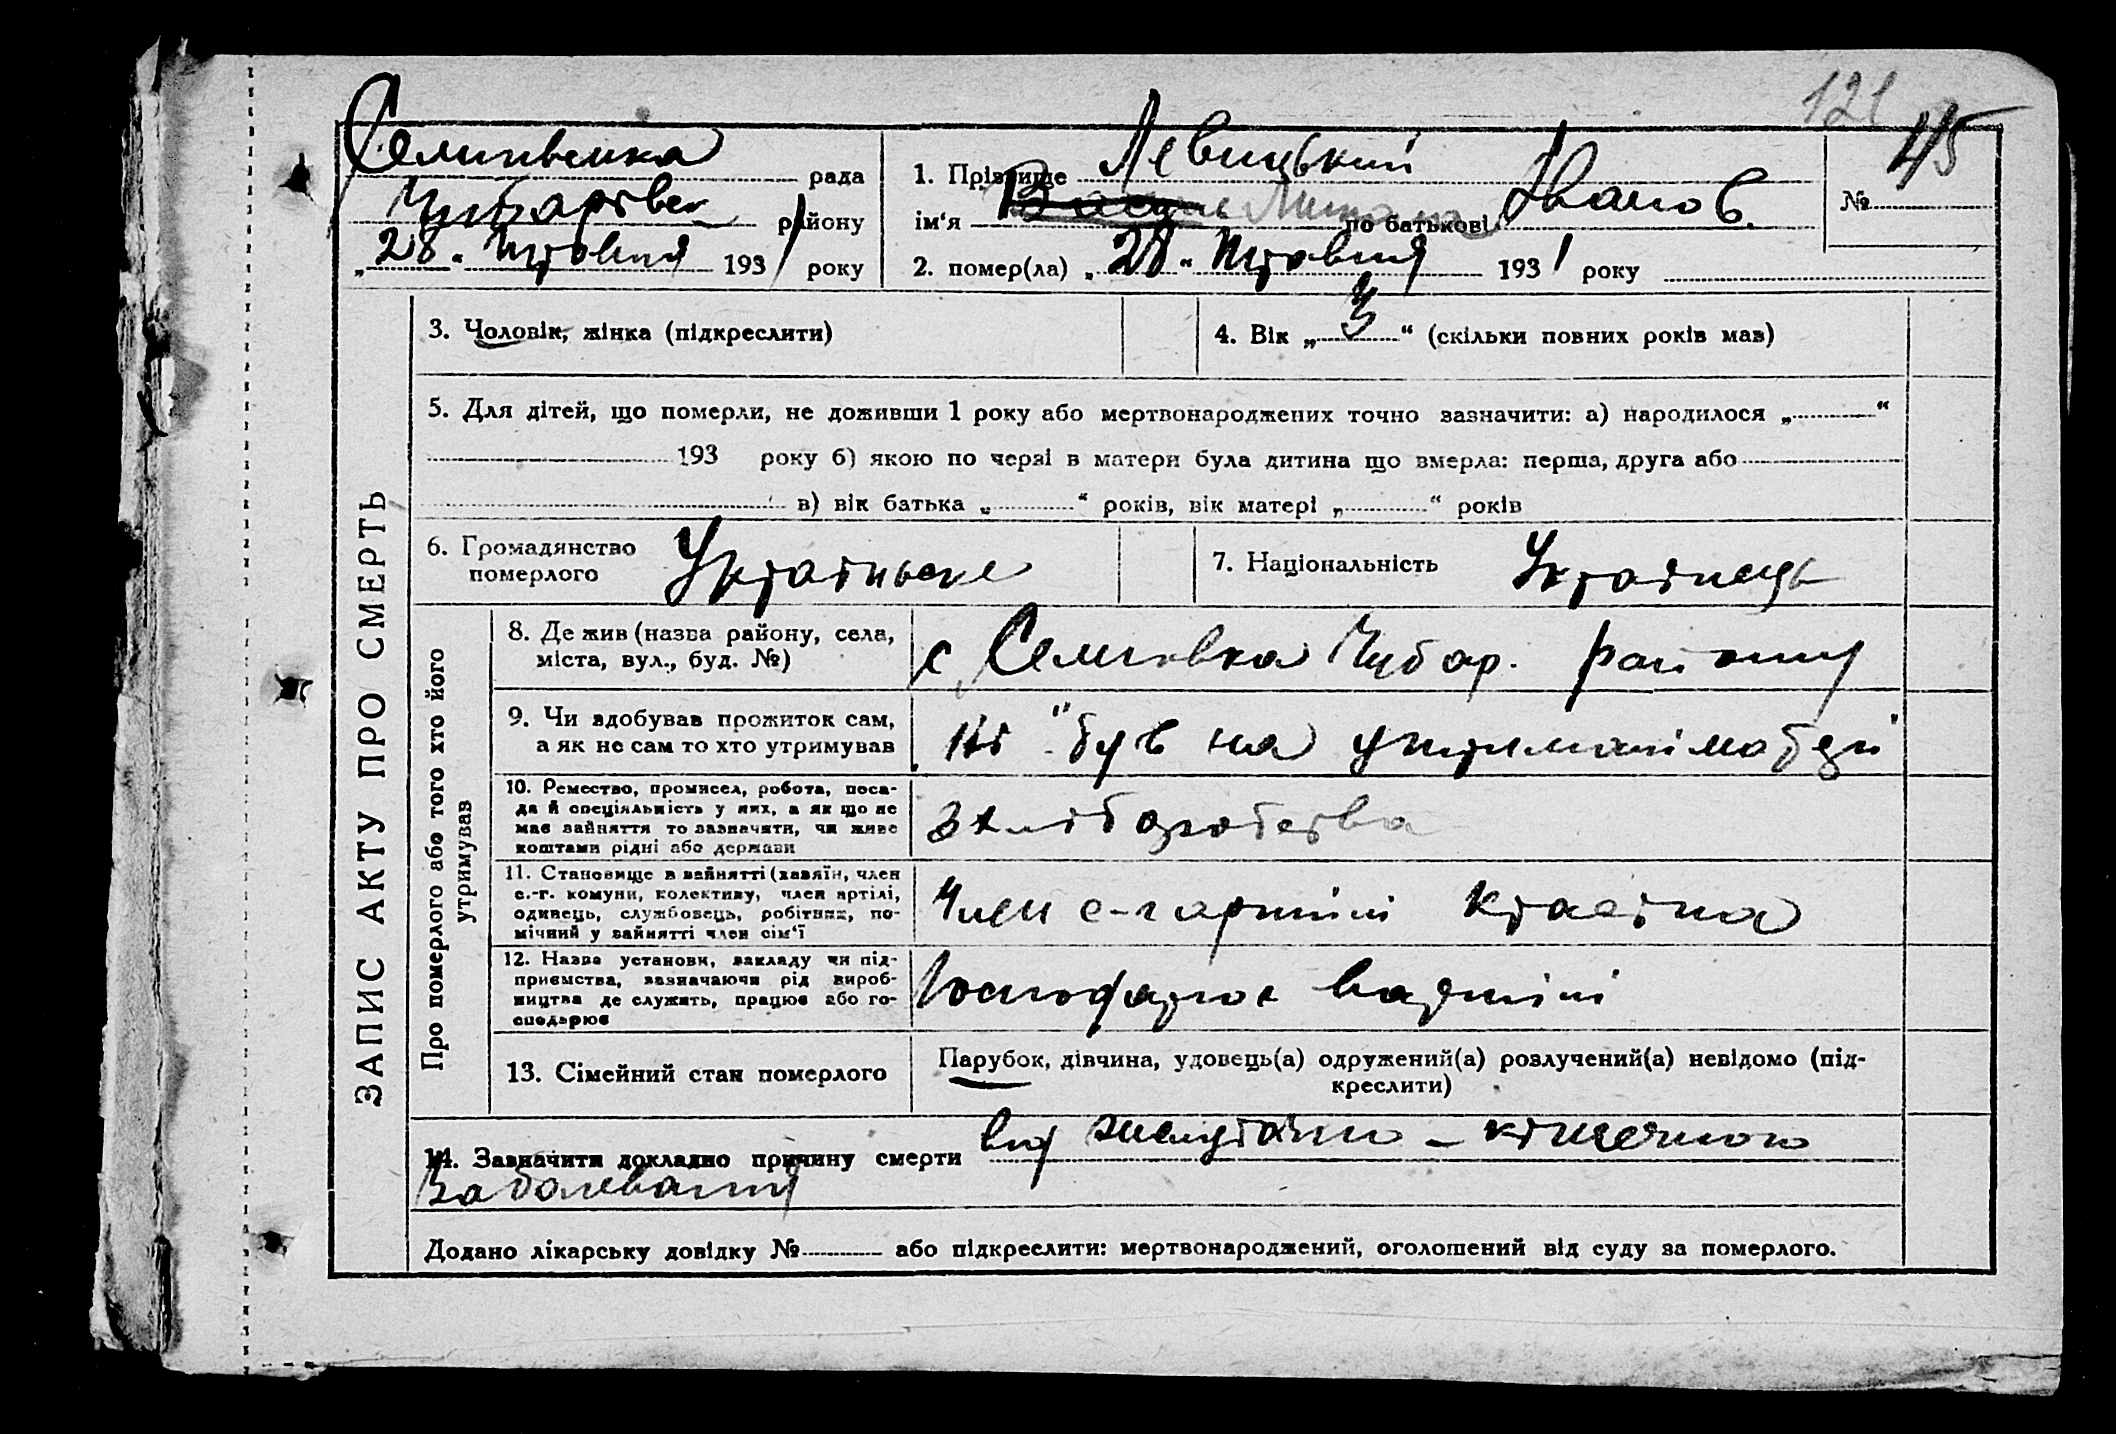 121
Семенівська рада
Чубарівськ району
„28“ Травня 1931 року
1. Прізвище Левицький
ім‘я Василь Михайло по батькові Іванов.
№ 45
2. помер(ла) „28“ Травня 1931 року
ЗАПИС АКТУ ПРО СМЕРТЬ
3. Чоловік, жінка (підкреслити)
4. Вік „3“ (скільки повних років мав)
5. Для дітей, що померли, не доживши 1 року або мертвонароджених точно зазначити: а) народилося „ “
193 року б) якою по черзі в матери була дитина що вмерла: перша, друга або
в) вік батька „ “ років, вік матері „ “ років
6. Громадянство
померлого
Українське
7. Національність Українець
Про померлого або того хто його
утримував
8. Де жив (назва району, села,
міста, вул., буд. №)
с. Семенівка Чубар. району
9. Чи здобував прожиток сам,
а як не сам то хто утримував
Ні "був на утриманні
10. Ремество, промисел, робота, поса-
да й спеціяльність у них, а як що не
має зайняття то зазначити, чи живе
коштами рідні або держави
З хліборобства
11. Становище в зайнятті (хазяїн, член
с.-г. комуни, колективу, член артілі,
одинець, службовець, робітник, по-
мічний у зайнятті член сім‘ї
Член с-г артіли
12. Назва установи, закладу чи під-
приємства, зазначаючи рід вироб-
ництва де служить, працює або го-
сподарює
Господарює в артілі
13. Сімейний стан померлого
Парубок, дівчина, удовець(а) одружений(а) розлучений(а) невідомо (під-
креслити)
14. Зазначити докладно причину смерти від
Заболевання
Додано лікарську довідку № або підкреслити: мертвонароджений, оголошений від суду за померлого.